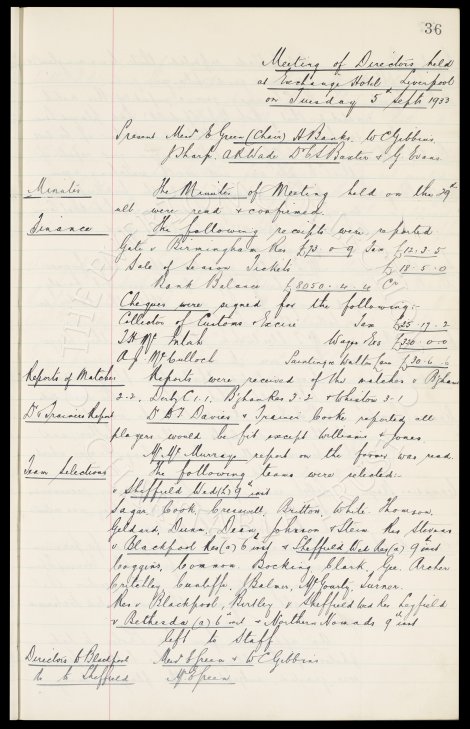 36
Meeting of Directors held
at Exchange Hotel, Liverpool
on Tuesday 5th Septr 1933
Present Messrs E Green (Chair) H Banks. W C Gibbins.
J Sharp. A R Wade Dr C S Baxter & G. Evans
Minutes The Minutes of Meeting held on the 29th
ult were read & confirmed.
Finance The following receipts were reported
Gate v Birmingham Res £73. 0. 9 Tax £12. 3. 5
Sale of Season Tickets £18. 5. 0
Bank Balance £8050. 4. 4 Cr
Cheques were signed for the following:-
Collector of Customs & Excise Tax £25. 17. 2
T H McIntosh Wages Etc £320. 0. 0
A J McCulloch Painting Walton Lane £30. 6. 6
Reports of Matches Reports were received of the matches v B'ham
2-2, Derby C 1-1, B'ham Res 3-2 & Wheaton 3-1
Dr & Trainers Report Dr D T Davies & Trainer Cooke reported all
players would be fit except Williams & Jones.
Mr McMurray's report on the former was read.
Team Selections The following teams were selected:-
v Sheffield Wed (h) 9th inst
Sagar, Cook, Cresswell, Britton, White. Thomson.
Geldard, Dunn, Dean, Johnson & Stein Res Stevens
v Blackpool Res (a) 6th inst & Sheffield Wed Res (a) 9th inst
Coggins, Common. Bocking. Clark, Gee. Archer
Critchley Cunliffe, J Balmer, McGourty, Turner.
Res v Blackpool, Hurdley, v Sheffield Wed Res Layfield
v Bethesda (a) 6 inst & Northern Nomads 9 inst
left to Staff
Directors to Blackpool Messrs E Green & W C Gibbins
to Sheffield Mr E Green